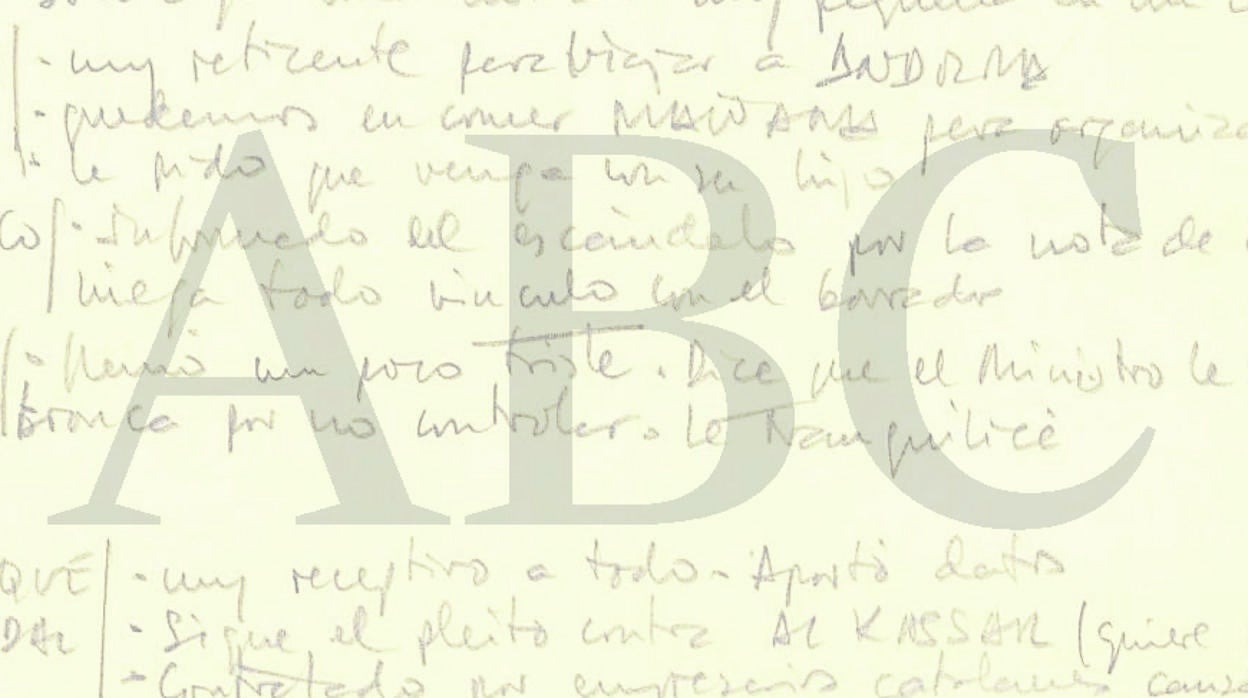 · muy reticente para viajar a ANDORRA
· quedamos en comer MAÑANA para organiza
· le pido que venga con su hijo
CO · Informado del escándalo por la nota de
niega todo vínculo con el borrador
· Llamó un poco triste. Dice que el Ministro le
bronca por no controlar. Le tranquilicé
QUE · muy receptivo a todo. Aportó datos
DAL · Sigue el pleito contra AL KASSAR (quiere
· Contratado por empresarios catalanes
ABC